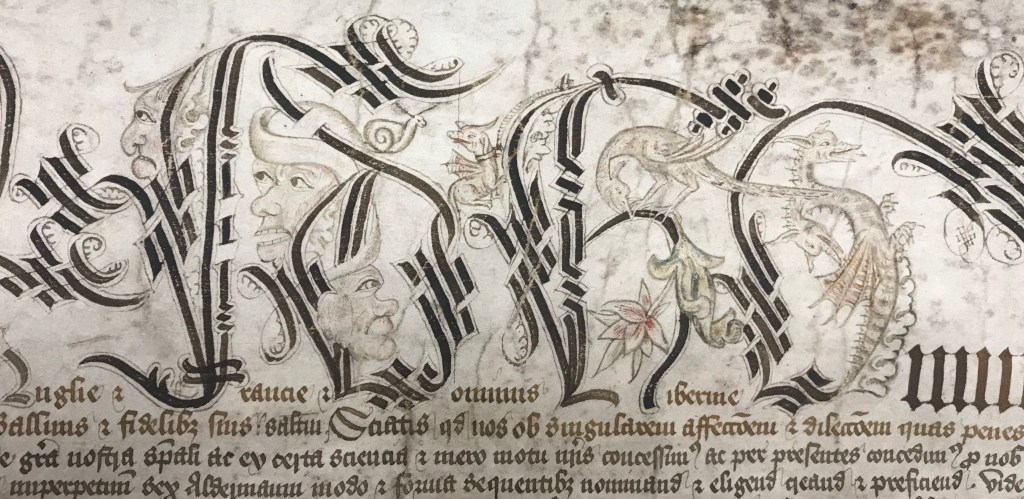 Anglie & Francie & Dominus Hibernie
Ballivis & fidelibz suis saltm Sciatis qd nos ob singularem affeccōem & dileccōem quas penes
gra nostra spāli ac ex certa sciencia & mero motu nris concessim9 ac per presentes concedim9 p nob
imperpetum sex Aldermann modo & forma sequentibz nominand & eligend qeand & preficiend